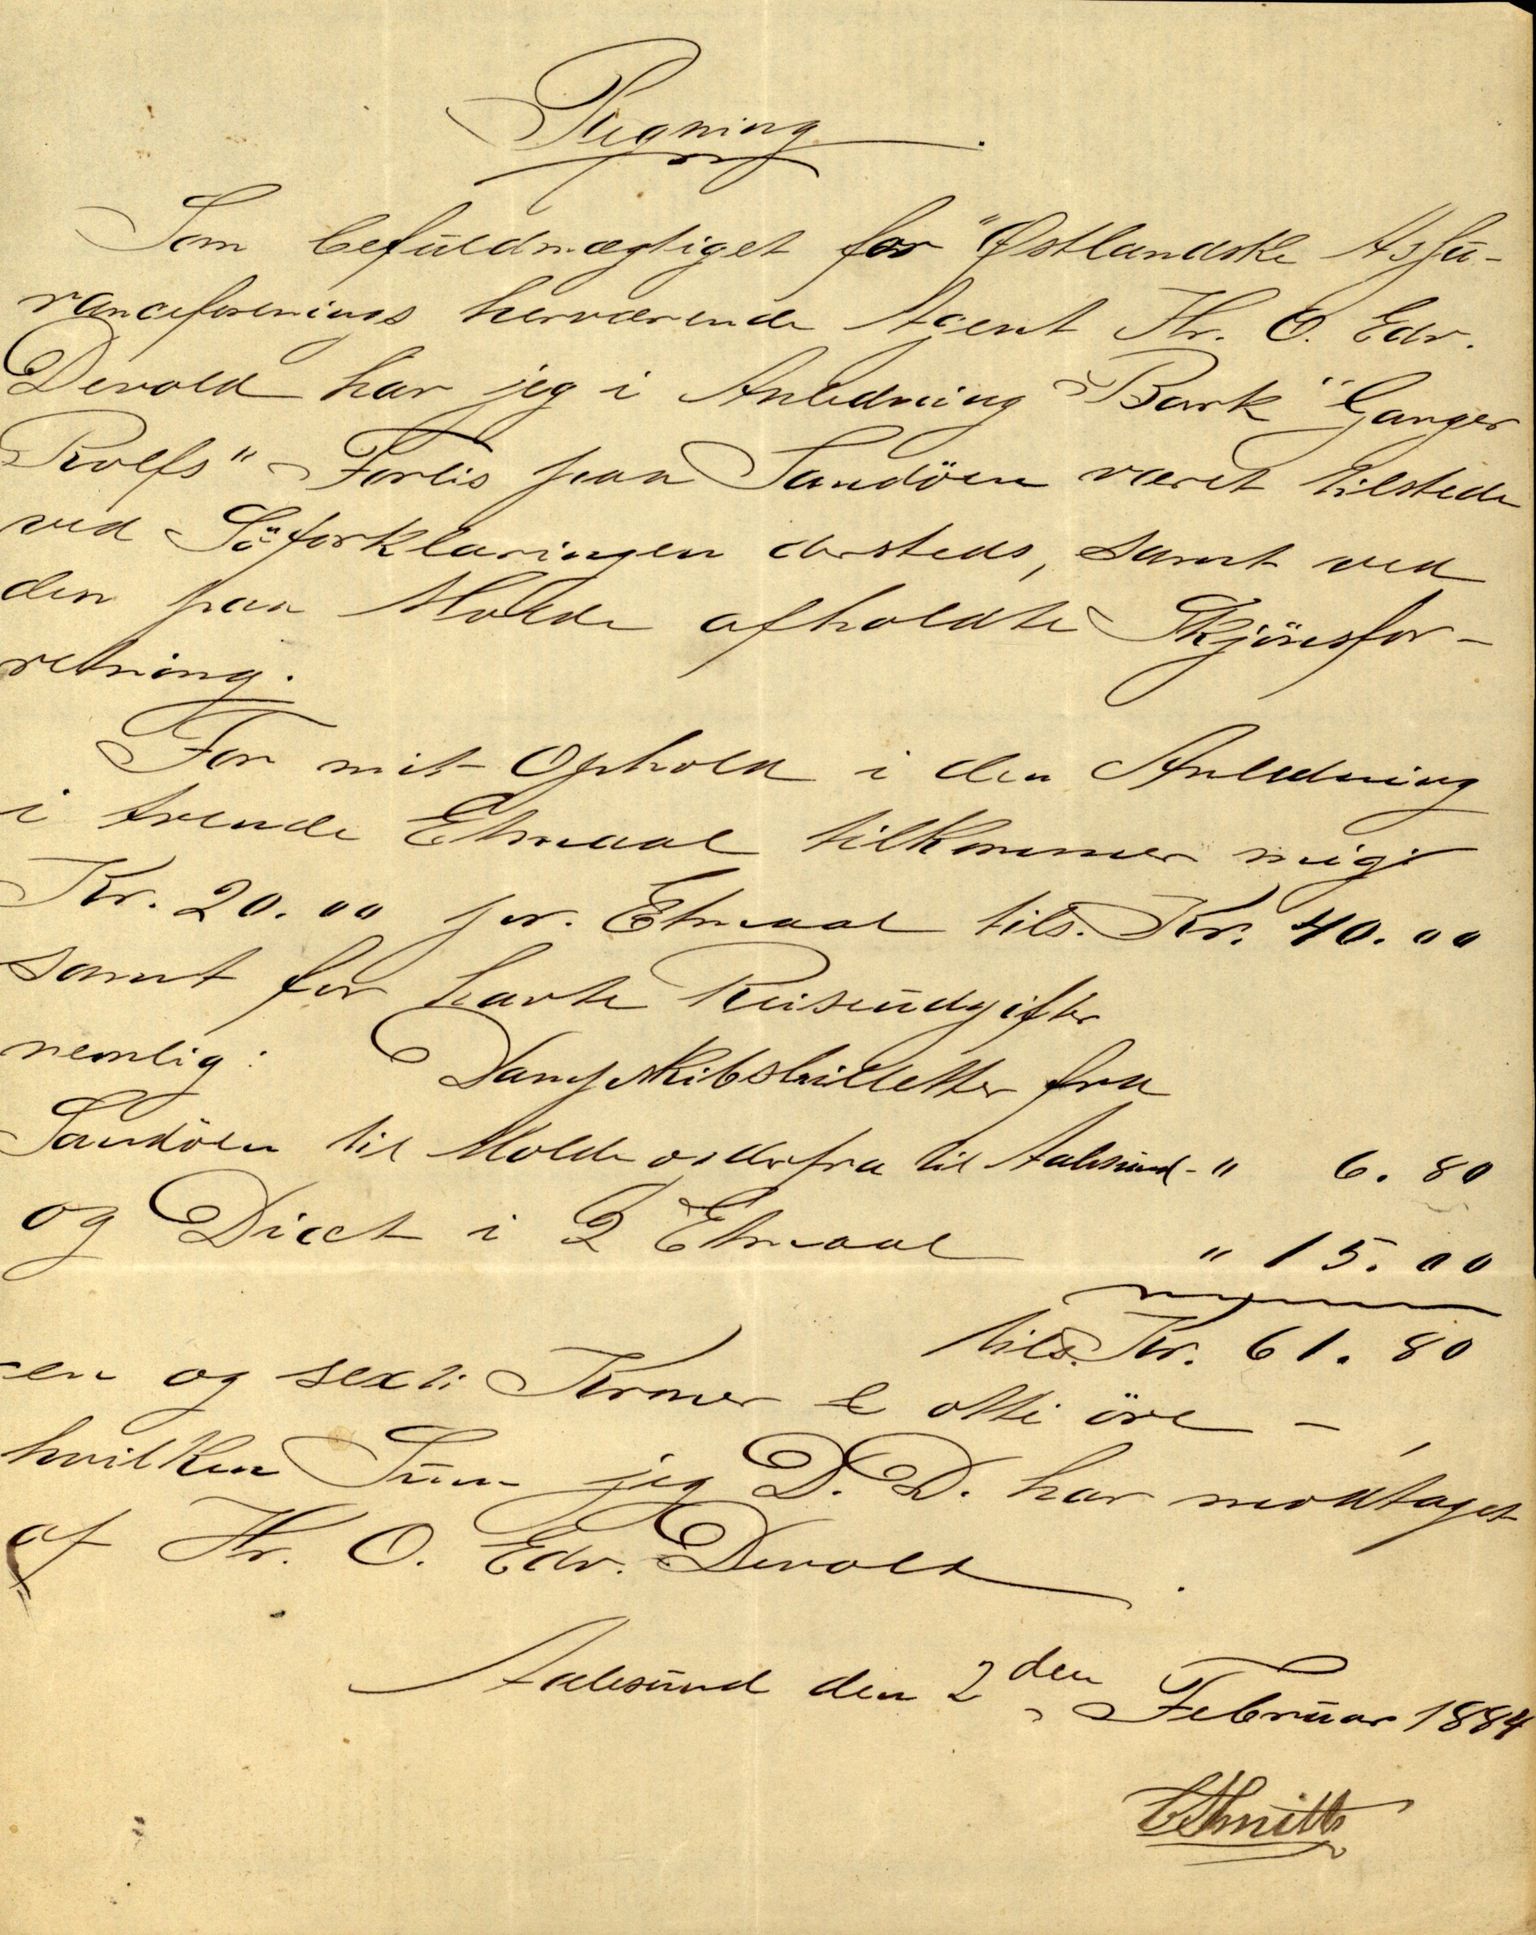 Regning
Som befuldmægtiget for "Østlandske Assu-
ranceforenings herværende Agent Hr. O. Edv.
Devold har jeg i Anledning Bark "Ganger
Rolfs" Forlis paa Sandöen været tilstede
ved Söforklaringen dersteds, samt ved
den paa Molde afholdte Skjönsfor-
retning.
For mit Ophold i den Anledning
i tvende Etmaal tilkommer mig
Kr. 20.00 pr. Etmaal tils. Kr. 40.00
samt for havte Reiseudgifter
nemlig: Dampskibsbilletter fra
Sandöen til Molde o. derfra til Aalesund - " 6.80
og Diæt i 2 Etmaal " 15.00
tils. Kr. 61.80
en og sexti Kroner & otti öre -
hvilken Sum jeg D. D. har modtaget
af Hr. O. Edv. Devold.
Aalesund den 2den Februar 1884